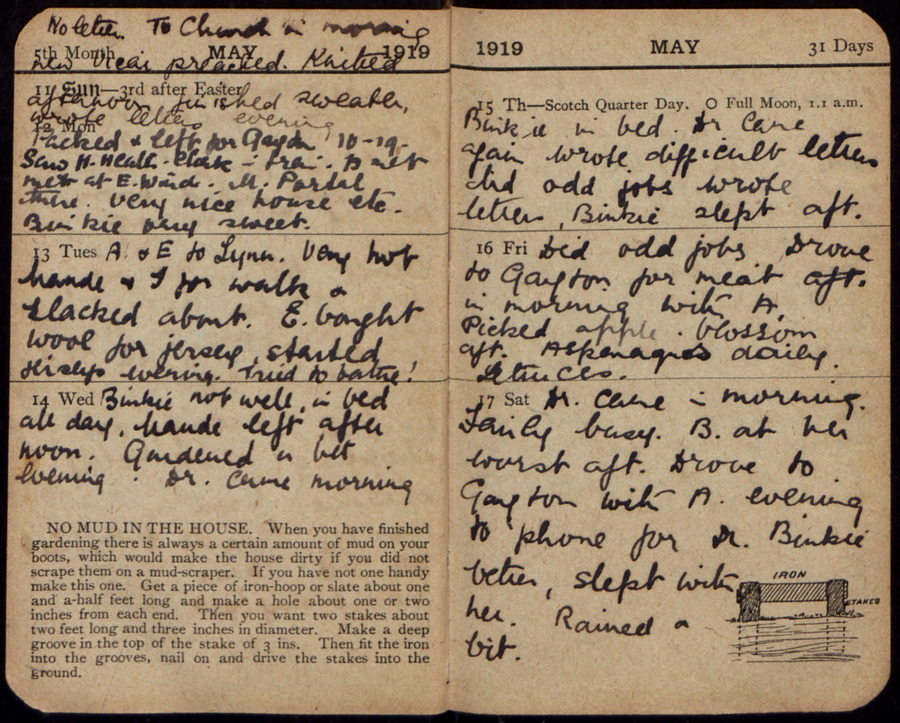 No letter. To Church in morning
5th Month MAY 1919
new Vicar preached. Knitted
11 Sun—3rd after Easter
afternoon finished sweater,
wrote letters evening
12 Mon
Packed & left for Gayton 10-19.
Saw H. Heath-Clark in train. B met
met at E. Winch. M. Portal
there. Very nice house etc.
Binkie very sweet.
13 Tues A. & E to Lynn. Very hot
Maude & I for walk &
slacked about. E. bought
wool for jersey, started
evening. Tried to bathe!
14 Wed Binkie not well, in bed
all day, Maude left after
noon. Gardened a bit
evening. Dr. came morning
NO MUD IN THE HOUSE. When you have finished
gardening there is always a certain amount of mud on your
boots, which would make the house dirty if you did not
scrape them on a mud-scraper. If you have not one handy
make this one. Get a piece of iron-hoop or slate about one
and a-half feet long and make a hole about one or two
inches from each end. Then you want two stakes about
two feet long and three inches in diameter. Make a deep
groove in the top of the stake of 3 ins. Then fit the iron
into the grooves, nail on and drive the stakes into the
ground.
1919 MAY 31 Days
15 Th—Scotch Quarter Day. O Full Moon, 1.1 a.m.
Binkie in bed. Dr Came
again wrote difficult letters
did odd jobs wrote
letters, Binkie slept aft.
16 Fri Did odd jobs, Drove
to Gayton for meat aft.
in morning with A.
Picked apple. blossom
aft. Aspenagus daily.
Lettuces.
17 Sat Dr. Came in morning.
Fairly busy. B. at her
worst aft. Drove to
Gayton with A. evening
to phone for Dr. Binkie
better, slept with
her. Rained a
bit.
IRON
STAKES